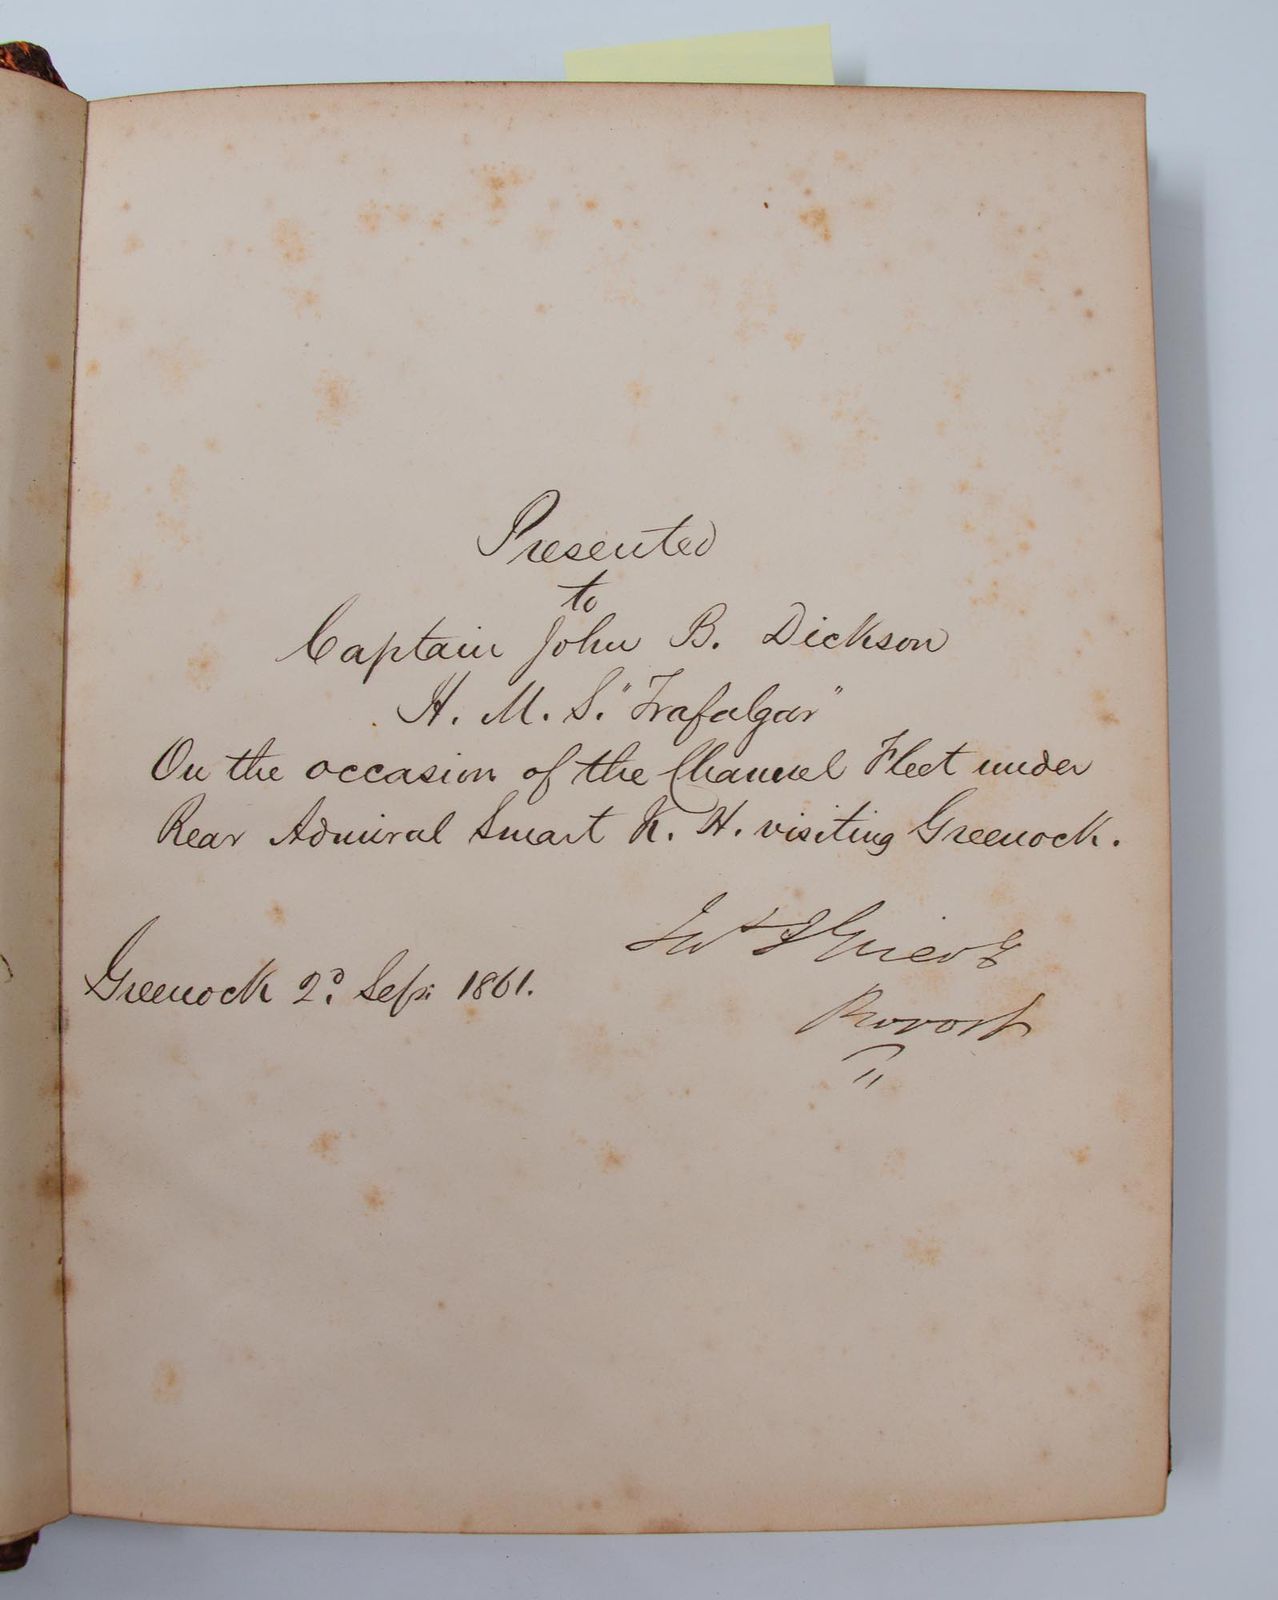 Presented
to
Captain John B. Dickson
H. M. S. "Trafalgar"
On the occasion of the Channel Fleet under
Rear Admiral Smart K. H. visiting Greenock.
Greenock 2d. Sep: 1861.
Provost